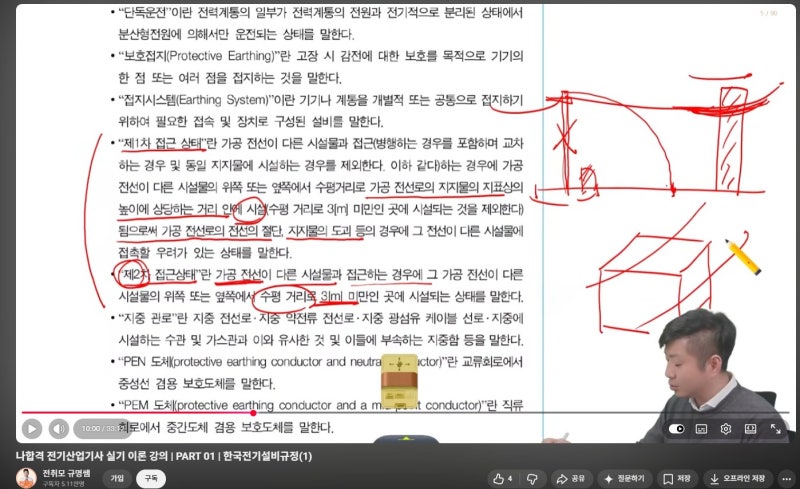 • “단독운전”이란 전력계통의 일부가 전력계통의 전원과 전기적으로 분리된 상태에서
분산형전원에 의해서만 운전되는 상태를 말한다.
• “보호접지(Protective Earthing)”란 고장 시 감전에 대한 보호를 목적으로 기기의
한 점 또는 여러 점을 접지하는 것을 말한다.
• “접지시스템(Earthing System)”이란 기기나 계통을 개별적 또는 공통으로 접지하기
위하여 필요한 접속 및 장치로 구성된 설비를 말한다.
• “제1차 접근 상태”란 가공 전선이 다른 시설물과 접근(병행하는 경우를 포함하며 교차
하는 경우 및 동일 지지물에 시설하는 경우를 제외한다. 이하 같다)하는 경우에 가공
전선이 다른 시설물의 위쪽 또는 옆쪽에서 수평거리로 가공 전선로의 지지물의 지표상의
높이에 상당하는 거리 안에 시설(수평 거리로 3[m] 미만인 곳에 시설되는 것을 제외한다)
됨으로써 가공 전선로의 전선의 절단, 지지물의 도괴 등의 경우에 그 전선이 다른 시설물에
접촉할 우려가 있는 상태를 말한다.
• “제2차 접근상태”란 가공 전선이 다른 시설물과 접근하는 경우에 그 가공 전선이 다른
시설물의 위쪽 또는 옆쪽에서 수평 거리로 3[m] 미만인 곳에 시설되는 상태를 말한다.
• “지중 관로”란 지중 전선로·지중 약전류 전선로·지중 광섬유 케이블 선로·지중에
시설하는 수관 및 가스관과 이와 유사한 것 및 이들에 부속하는 지중함 등을 말한다.
• “PEN 도체(protective earthing conductor and neutral conductor)”란 교류회로에서
중성선 겸용 보호도체를 말한다.
• “PEM 도체(protective earthing conductor and a mid-point conductor)”란 직류
회로에서 중간도체 겸용 보호도체를 말한다.
10:00 / 33:12
나합격 전기산업기사 실기 이론 강의 | PART 01 | 한국전기설비규정(1)
전취모 규명쌤
구독자 5.11만명
가입
구독
4
공유
질문하기
저장
오프라인 저장